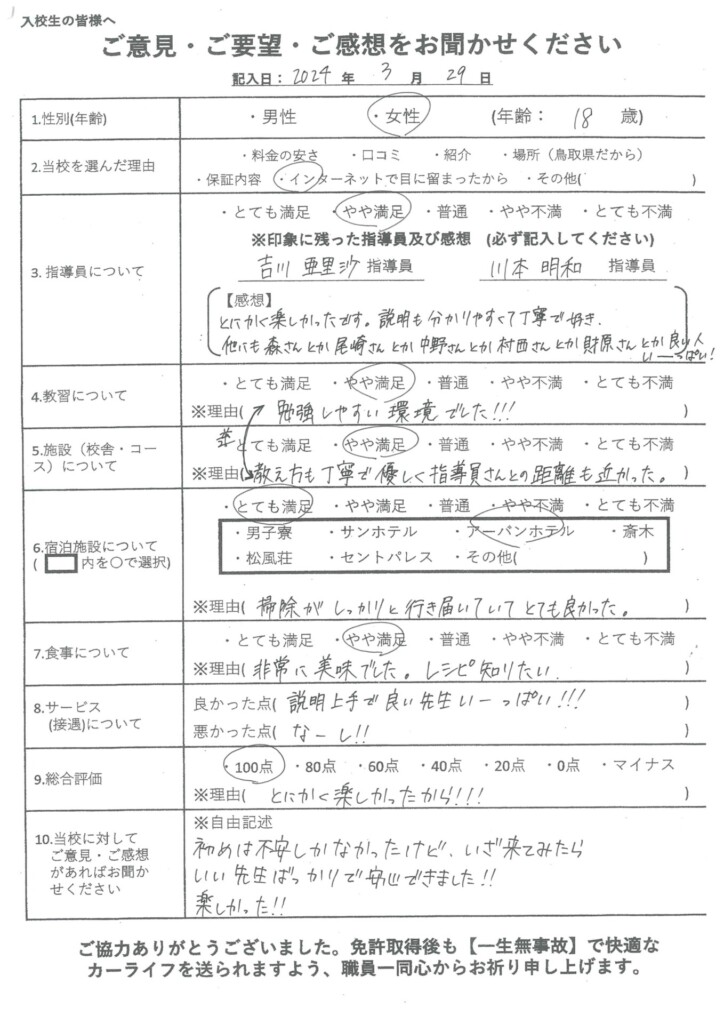 入校生の皆様へ
ご意見・ご要望・ご感想をお聞かせください
記入日： 2024 年 3 月 29 日
1.性別(年齢) ・男性 ・女性 (年齢： 18 歳)
2.当校を選んだ理由 ・料金の安さ ・口コミ ・紹介 ・場所（鳥取県だから）
・保証内容 ・インターネットで目に留まったから ・その他( )
3. 指導員について ・とても満足 ・やや満足 ・普通 ・やや不満 ・とても不満
※印象に残った指導員及び感想 (必ず記入してください)
吉川 亜里沙 指導員 川本 明和 指導員
【感想】
とにかく楽しかったです。説明も分かりやすくて丁寧で好き.
他にも森さんとか尾崎さんとか中野さんとか村西さんとか財原さんとか良い人
いーっぱい！
4.教習について ・とても満足 ・やや満足 ・普通 ・やや不満 ・とても不満
※理由( 勉強しやすい環境でした!!! )
5.施設（校舎・コース）について ・とても満足 ・やや満足 ・普通 ・やや不満 ・とても不満
※理由( 教え方も丁寧で優しく指導員さんとの距離も近かった。 )
6.宿泊施設について
( 内を〇で選択) ・とても満足 ・やや満足 ・普通 ・やや不満 ・とても不満
・男子寮 ・サンホテル ・アーバンホテル ・斎木
・松風荘 ・セントパレス ・その他( )
※理由( 掃除がしっかりと行き届いていてとても良かった。 )
7.食事について ・とても満足 ・やや満足 ・普通 ・やや不満 ・とても不満
※理由( 非常に美味でした。レシピ知りたい )
8.サービス
(接遇)について 良かった点( 説明上手で良い先生いーっぱい!!! )
悪かった点( なーし!! )
9.総合評価 ・100点 ・80点 ・60点 ・40点 ・20点 ・0点 ・マイナス
※理由( とにかく楽しかったから!!! )
10.当校に対して
ご意見・ご感想
があればお聞か
せください
※自由記述
初めは不安しかなかったけど、いざ来てみたら
いい先生ばっかりで安心できました!!
楽しかった!!
ご協力ありがとうございました。免許取得後も【一生無事故】で快適な
カーライフを送られますよう、職員一同心からお祈り申し上げます。